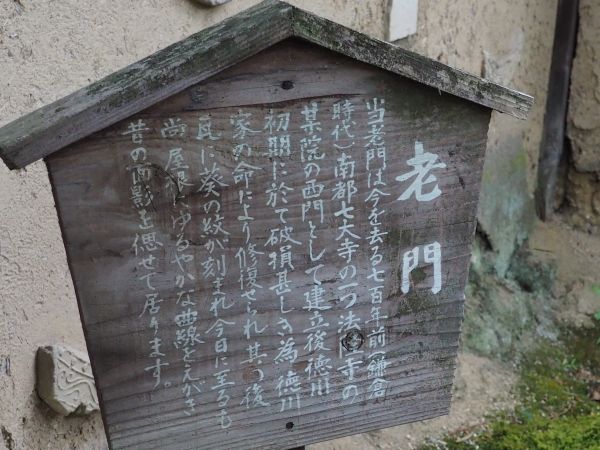 老門
当老門は今を去る七百年前(鎌倉
時代)南都七大寺の一つ法隆寺の
某院の西門として建立後徳川
初期に於て破損甚しき為、徳川
家の命により修復せられ其の後
瓦に葵の紋が刻まれ今日に至るも
尚屋根にゆるやかな曲線をえがき
昔の面影を偲せて居ります。